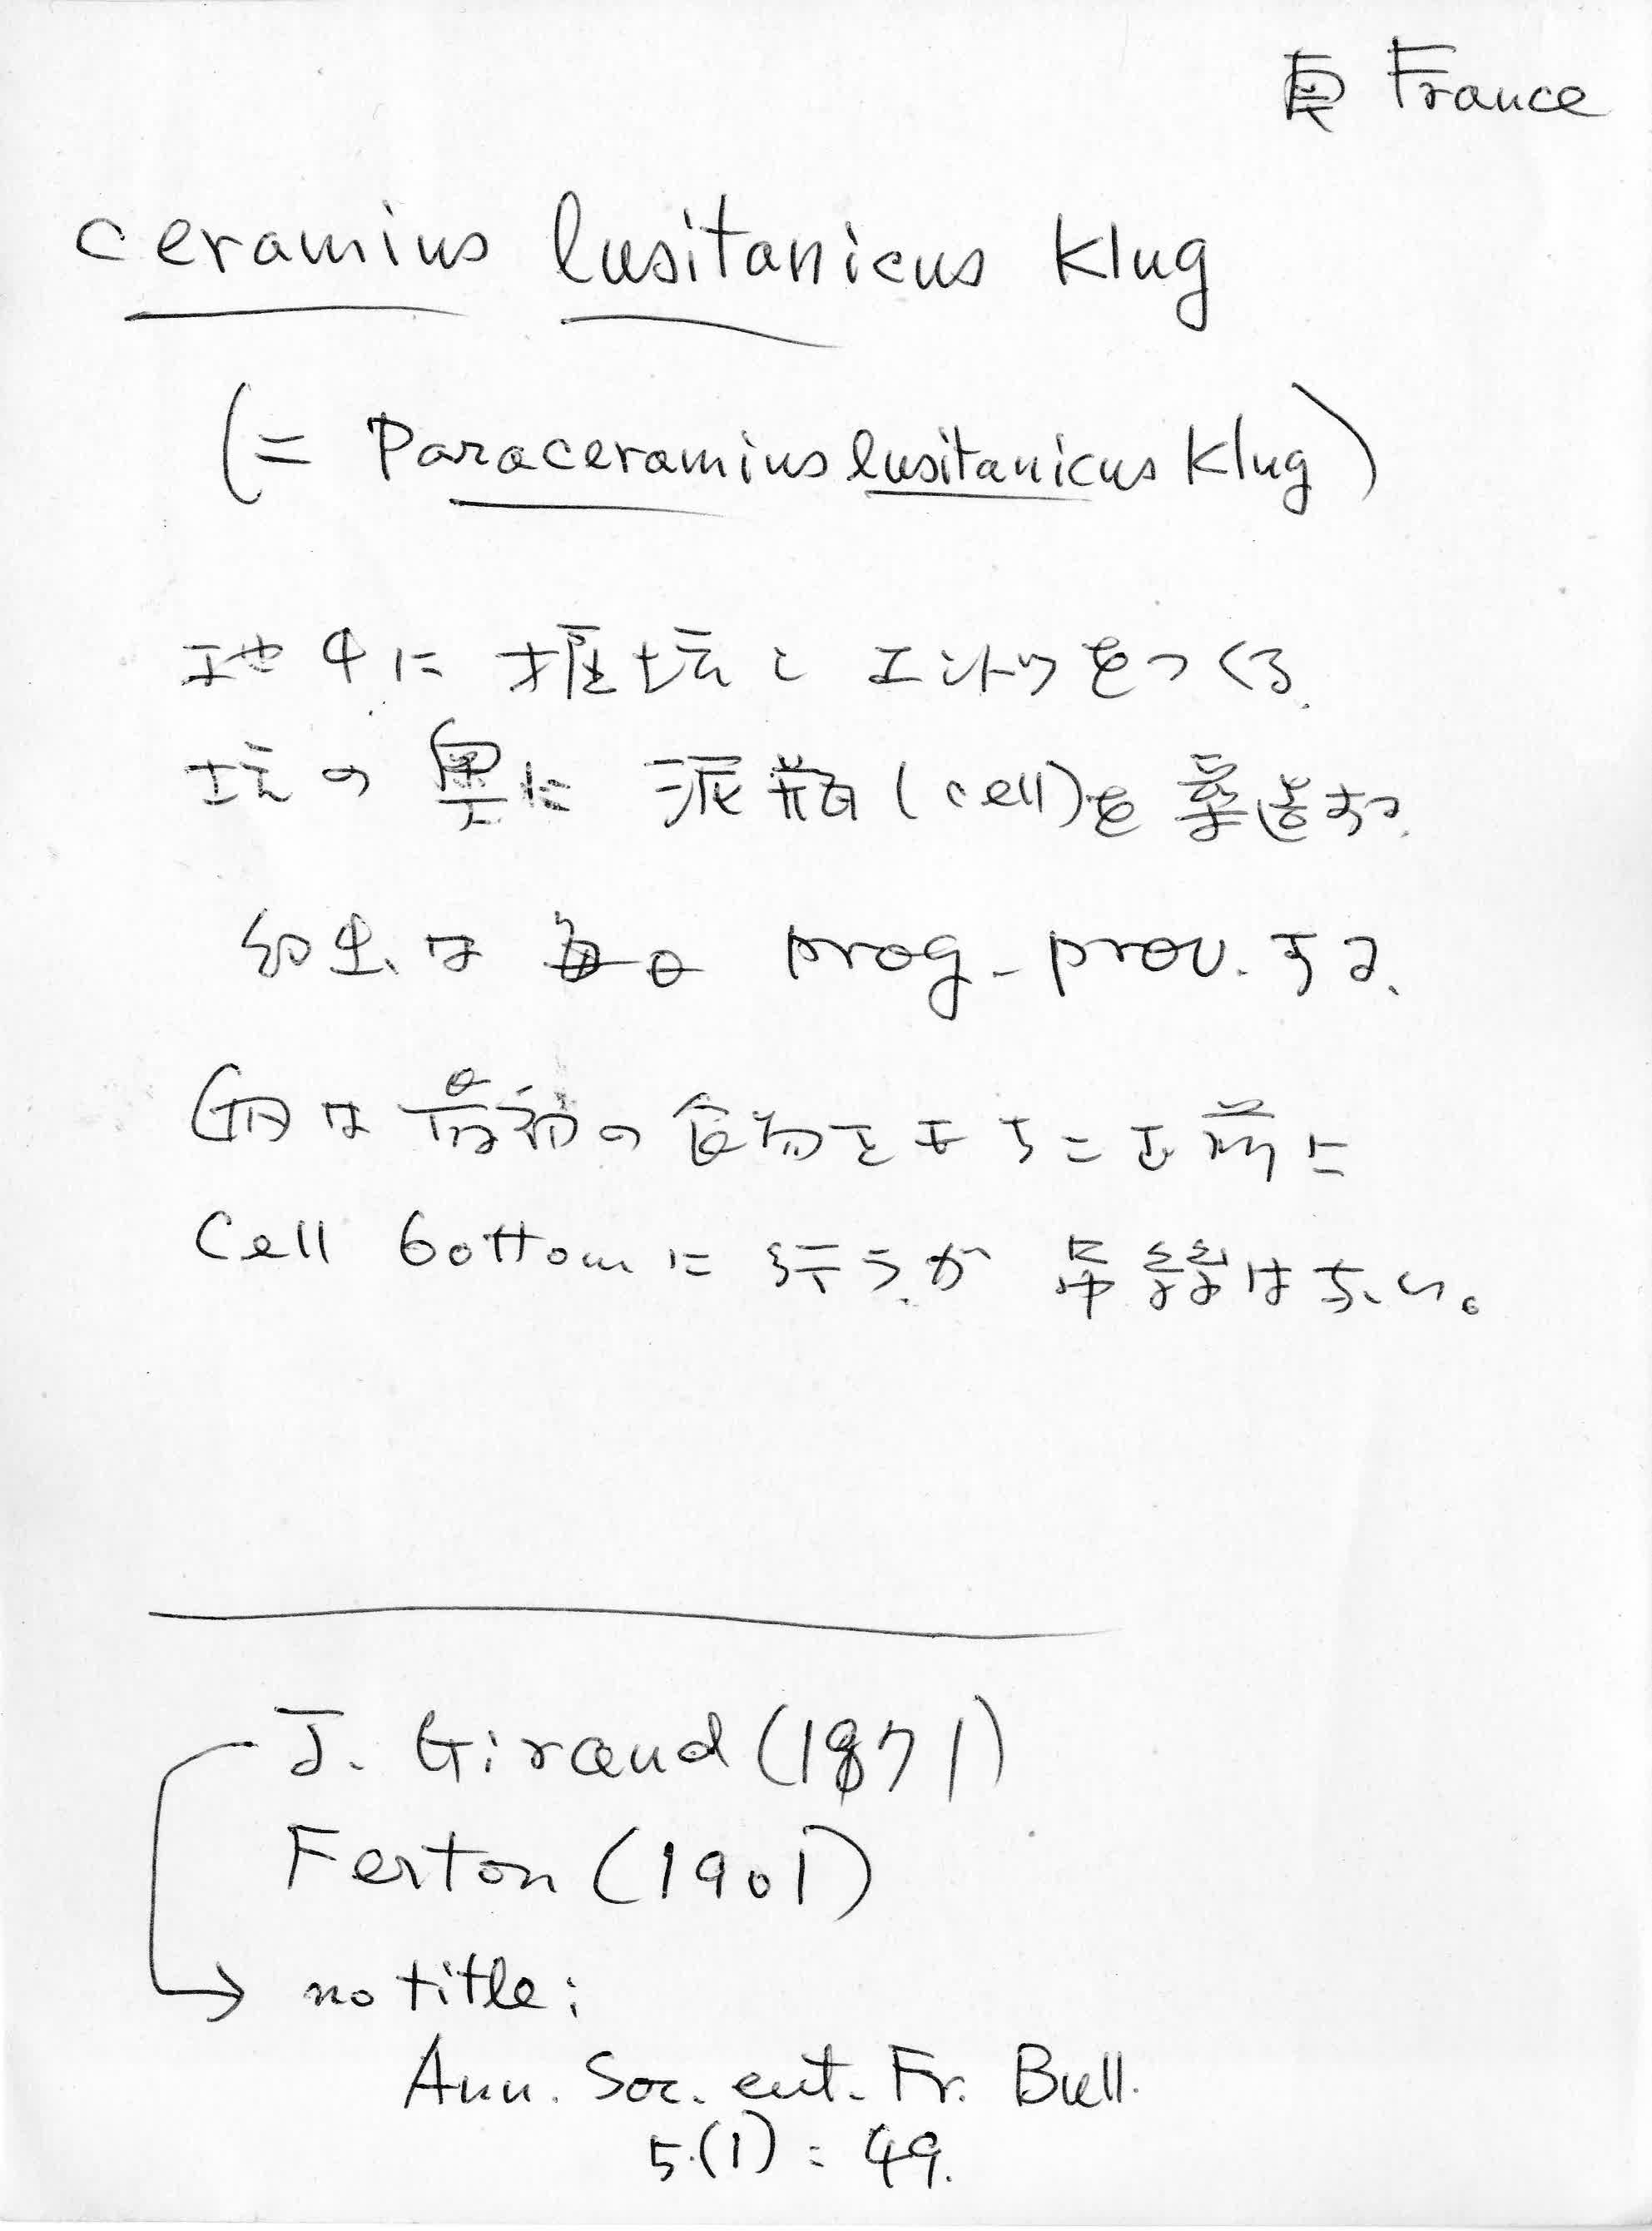 France
Ceramius lusitanicus Klug
(= Paraceramius lusitanicus Klug)
地中に堀坑しエントツをつくる.
坑の奥に泥瓶(cell)を築造する.
幼虫は prog-prov. する.
卵は最初の食物をもちこむ前に
Cell bottomに行うが 吊絲はない。
J. Giraud (1871)
Ferton (1901)
no title;
Ann. Soc. ent. Fr. Bull.
5.(1): 49.